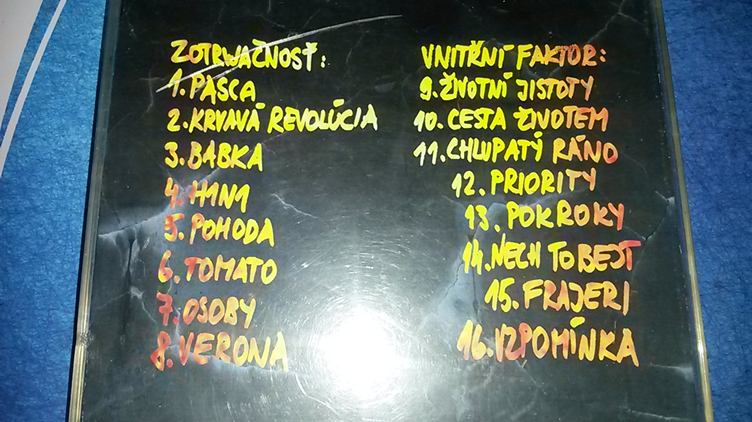 ZOTRWAČNOSŤ:
1. PASCA
2. KRVAVÁ REVOLÚCIA
3. BABKA
4. H1N1
5. POHODA
6. TOMATO
7. OSOBY
8. VERONA
VNITŘNÍ FAKTOR:
9. ŽIVOTNÍ JISTOTY
10. CESTA ŽIVOTEM
11. CHLUPATÝ RÁNO
12. PRIORITY
13. POKROKY
14. NECH TO BEJT
15. FRAJERI
16. VZPOMÍNKA